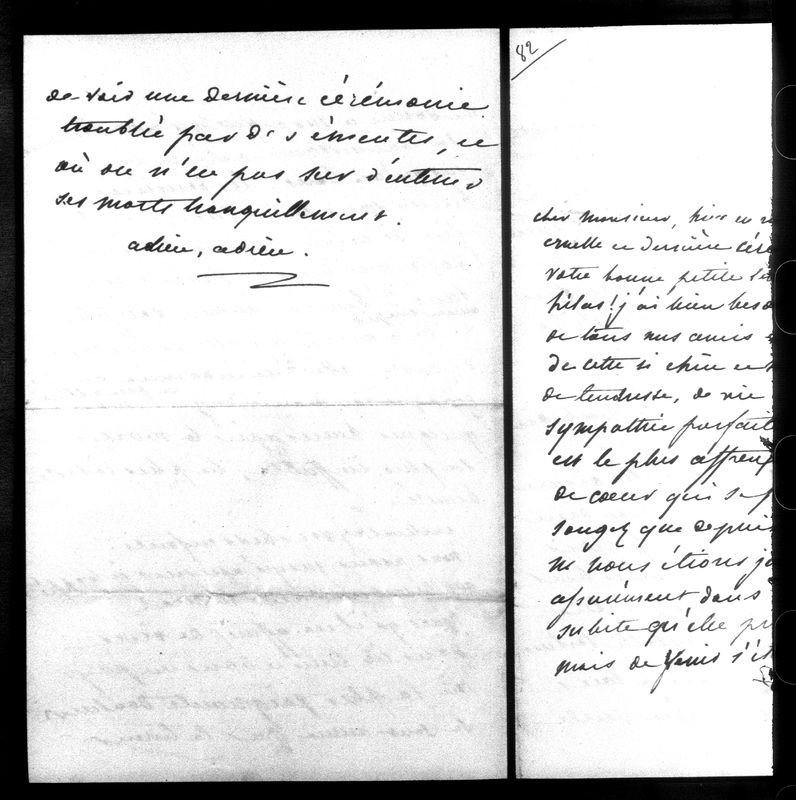 de voir une dernière cérémonie
troublée par des émeutes, ce
où on n'en pas sur d'enterrer
ses morts tranquillement.
adieu, adieu.
82
cher monsieur,
cruelle ce dernière céré
votre bonne petite
hélas! j'ai bien beso
de tous nos amis
de cette si chère
de tendresse, de vie
sympathie parfait
est le plus affreux
de coeur qui se
songez que depuis
ne nous étions ja
assurément dans
subite qu'elle
mais de Janis s'ét